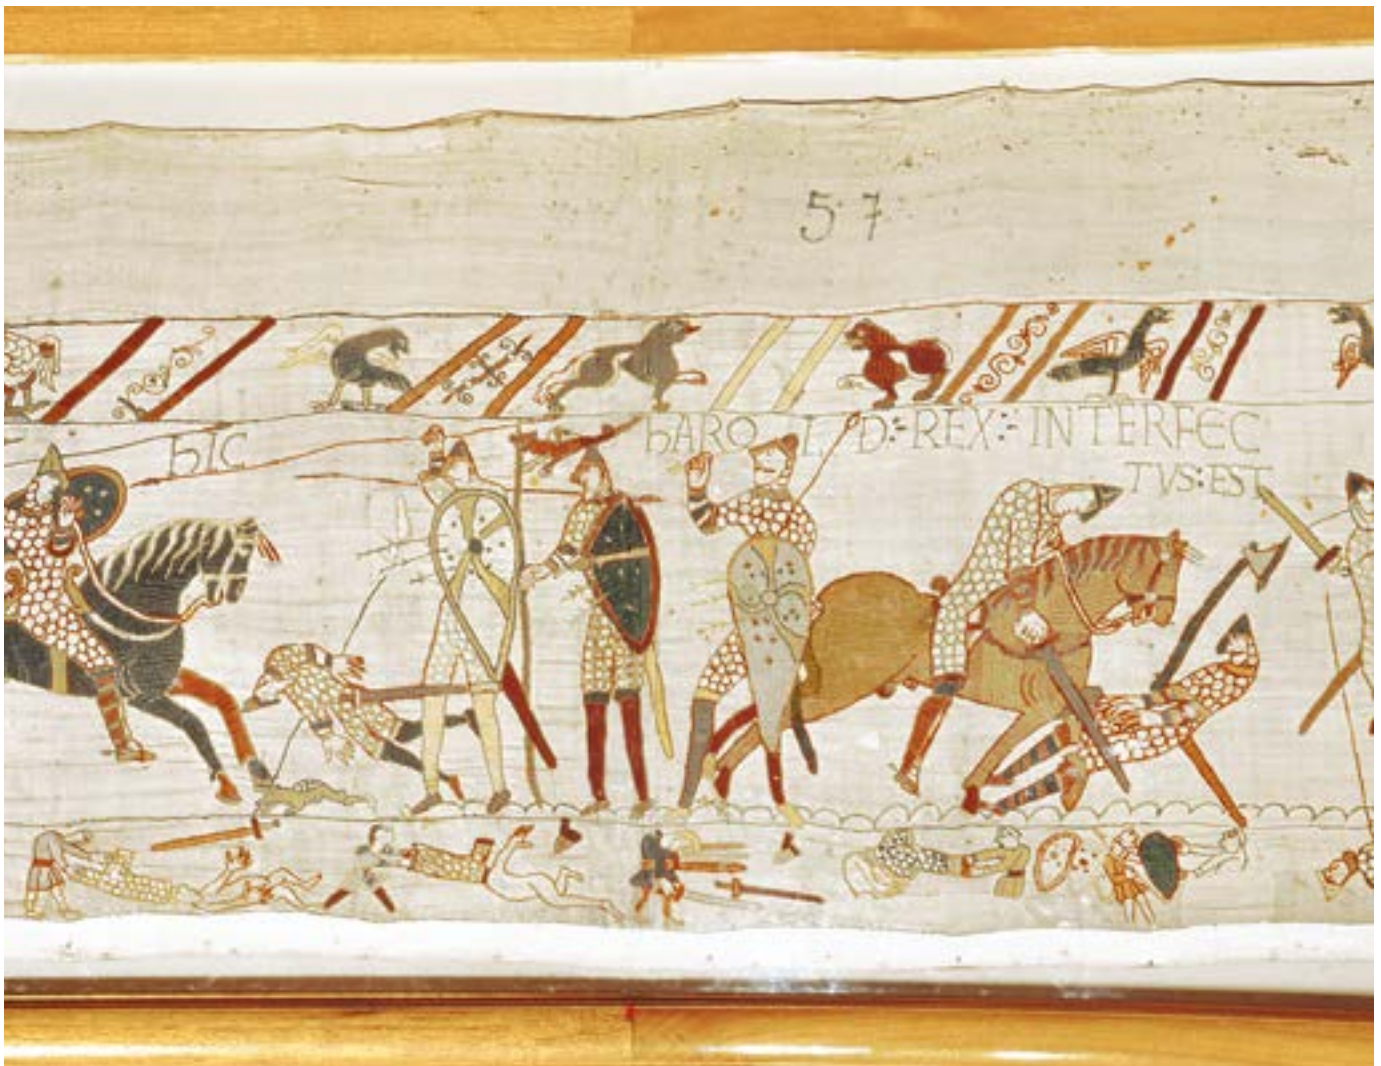 57
hIC hAROLD:REX:INTERFEC
TVS:EST